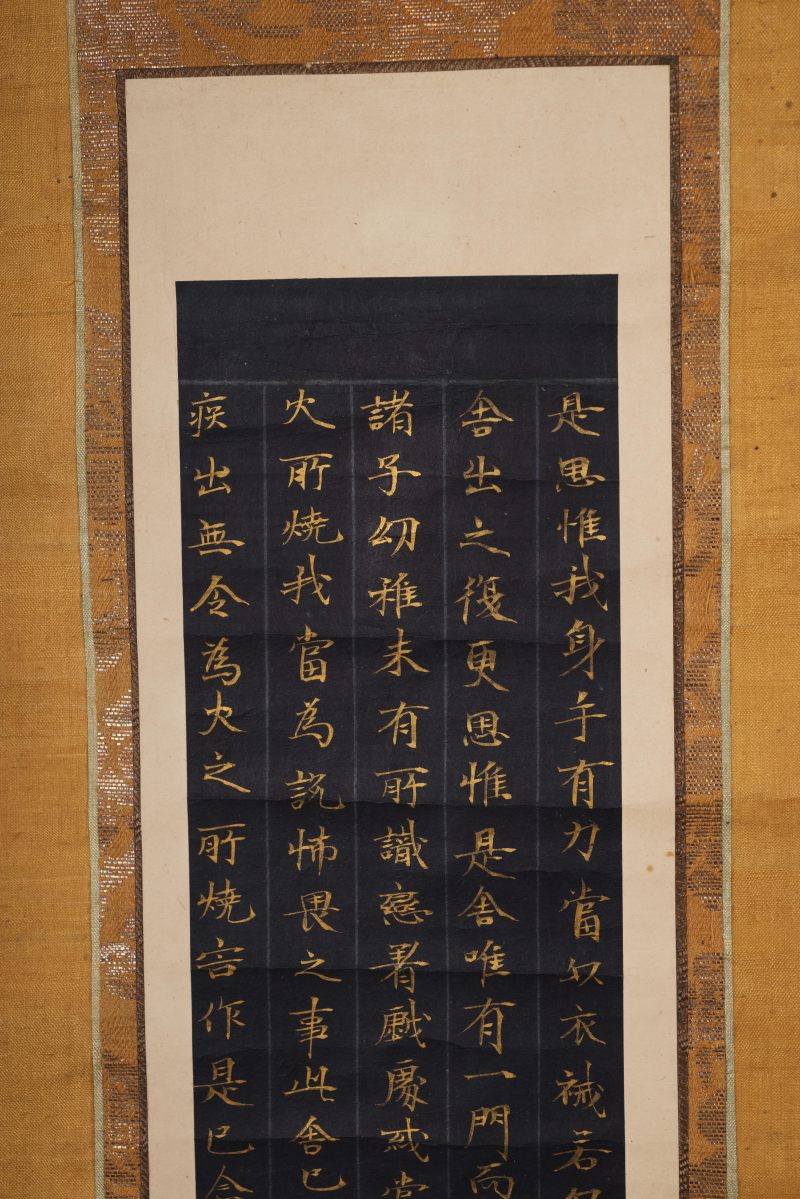 是思惟我身手有力當以衣裓若
舍出之復更思惟是舍唯有一門而
諸子幼稚未有所識戀著戲處或當
火所燒我當為說怖畏之事此舍已
疾出無令為火之所燒害作是已念